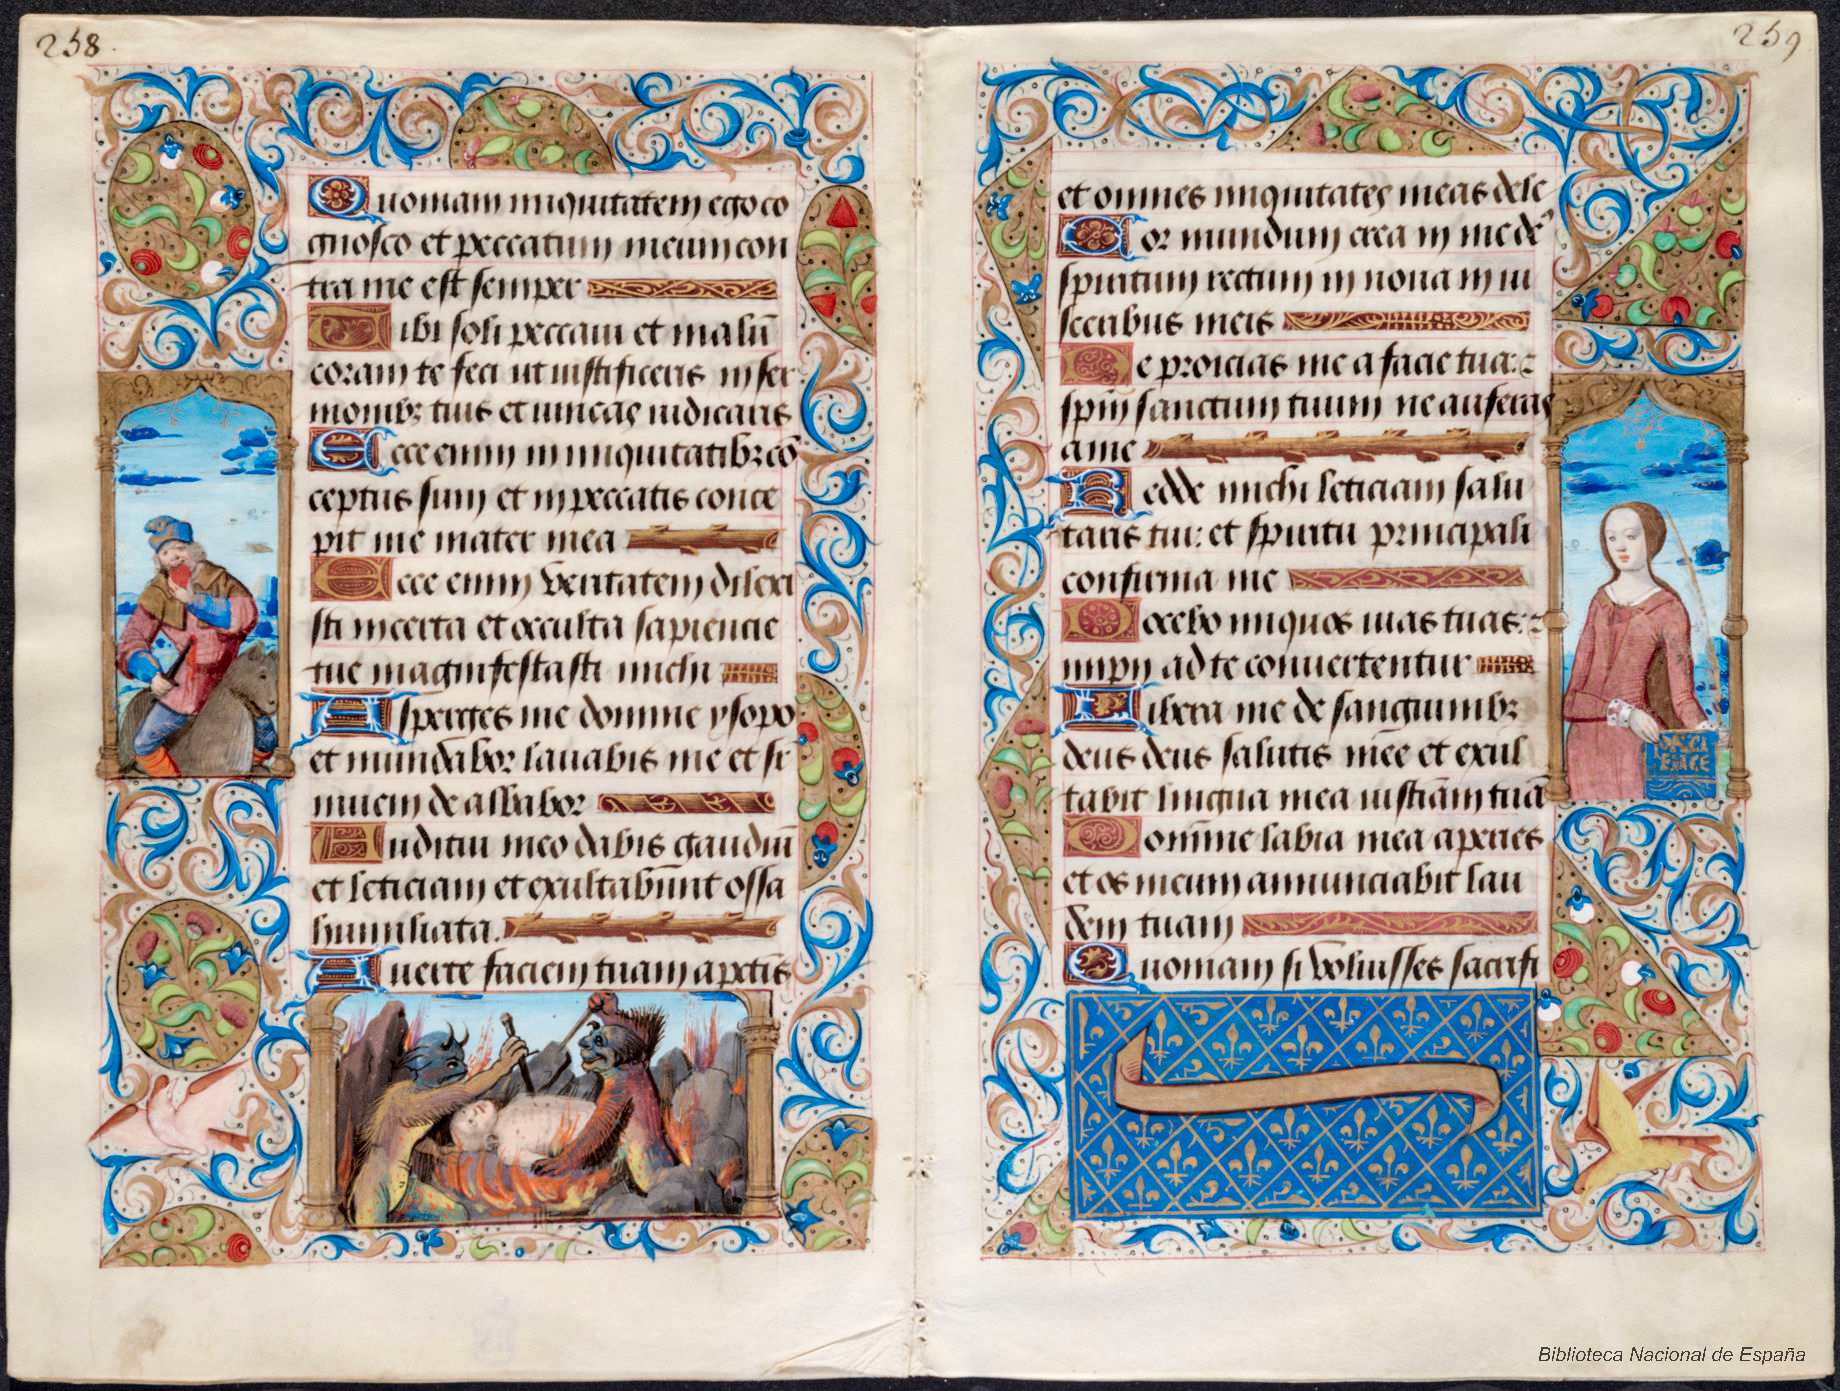 258.
Quoniam iniquitatem ego co
gnosco et peccatum meum con
tra me est semper
Tibi soli peccaui et malū
coram te feci ut iustificeris in ser
monibꝫ tuis et uincas iudicaris
Ecce enim in iniquitatibꝫ cō
ceptus sum et in peccatis conce
pit me mater mea
Ecce enim veritatem dilexi
sti incerta et occulta sapiencie
tue magnifestasti michi
Asperges me domine ysopo
et mundabor lauabis me et sr
niuem dealbabor
Auditui meo dabis gaudiū
et leticiam et exultabūnt ossa
humiliata.
Auerte faciem tuam a pctīs
259
et omnes iniquitates meas dele
Cor mundum crea in me de
spiritum rectum in noua in ui
sceribus meis
Ne proicias me a facie tua:
spm̄ sanctum tuum ne auferas
a me
Redde michi leticiam salu
taris tui: et spiritu principali
confirma me
Docebo iniquos uias tuas:
impii ad te conuertentur
Libera me de sanguinibꝫ
deus deus salutis mēe et exul
tabit lingua mea iustiām tuā
Domīne labia mea aperies
et os meum annunciabit lau
dem tuam
Quoniam si voluisses sacrifi
Biblioteca Nacional de España